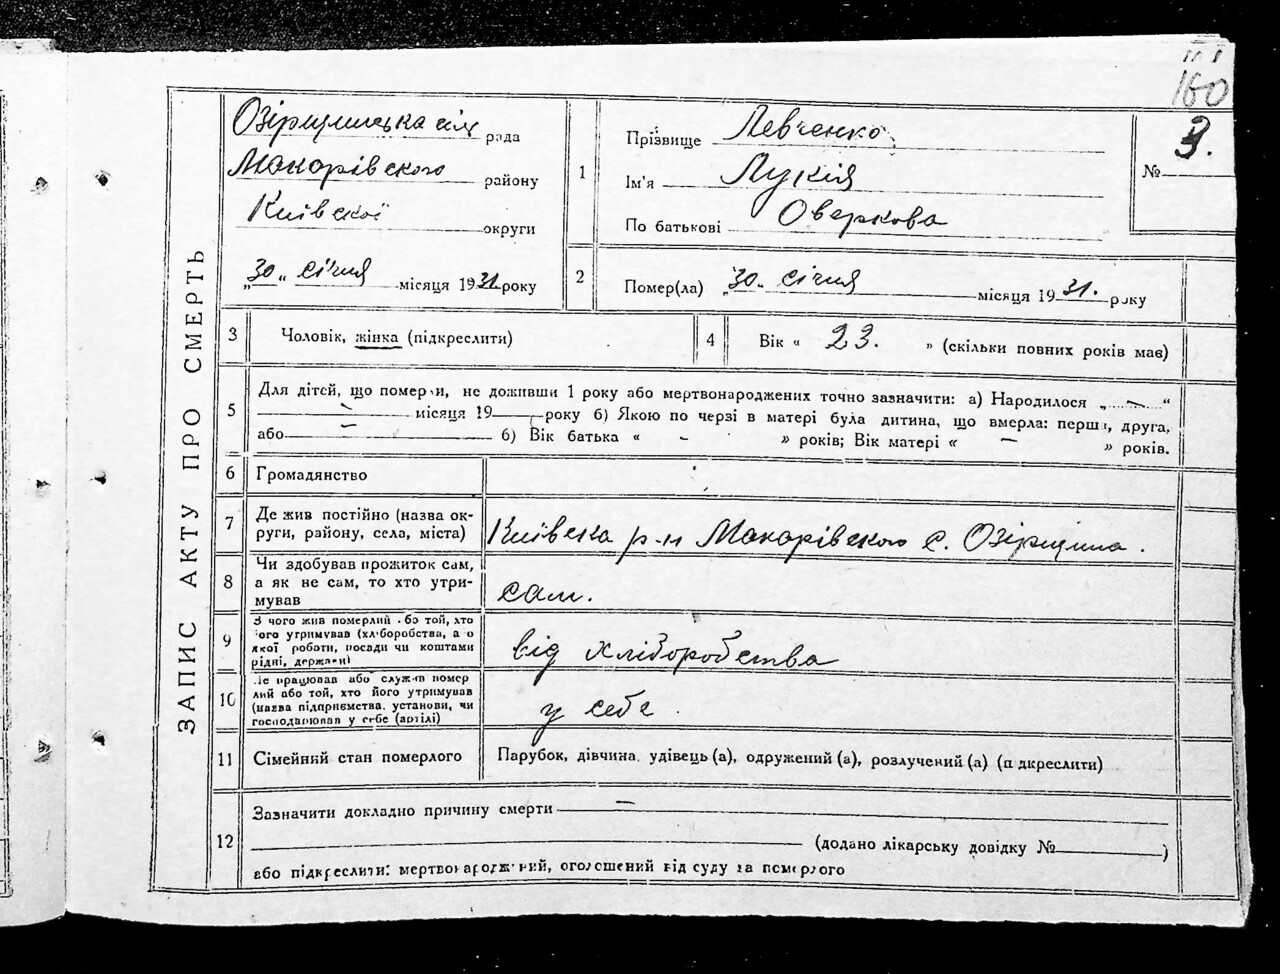 160
ЗАПИС АКТУ ПРО СМЕРТЬ
Озірщинська сіл рада
Макарівского району
Київскої округи
„30“ січня місяця 1931 року
1
Прізвище Левченко
Ім'я Лукія
По батькові Оверкова
№ 3.
2
Помер(ла) „30„ січня місяця 1931. року
3
Чоловік, жінка (підкреслити)
4
Вік « 23. » (скільки повних років має)
5
Для дітей, що померли, не доживши 1 року або мертвонароджених точно зазначити: а) Народилося „ — “
— місяця 19 року б) Якою по черзі в матері була дитина, що вмерла: перша, друга,
або — б) Вік батька « - » років; Вік матері « — » років.
6
Громадянство
7
Де жив постійно (назва ок-
руги, району, села, міста)
Київска р-н Макарівского с. Озірщина.
8
Чи здобував прожиток сам,
а як не сам, то хто утри-
мував
сам.
9
З чого жив померлий або той, хто
його утримував (хліборобства, а о
якої роботи, посади чи коштами
рідні, держави)
від хліборобства
10
Де працював або служив помер
лий або той, хто його утримував
(назва підприємства, установи, чи
господарював у себе (артілі)
у себе.
11
Сімейний стан померлого
Парубок, дівчина, удівець (а), одружений (а), розлучений (а) (підкреслити)
12
Зазначити докладно причину смерти —
(додано лікарську довідку № )
або підкреслити: мертвонароджений, оголошений від суду за померлого